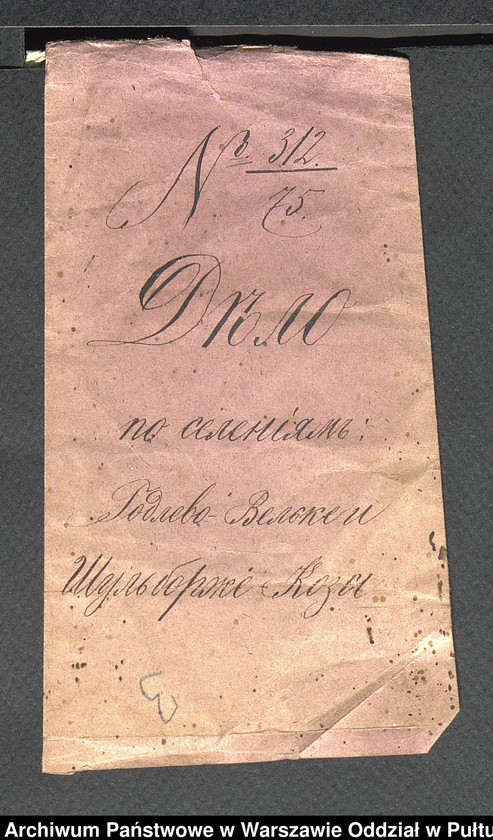 № 312
75.
Дѣло
по селеніямъ:
Годлево-Велькеи
Шульборже-Коза
3
Archiwum Państwowe w Warszawie Oddział w Pułtu